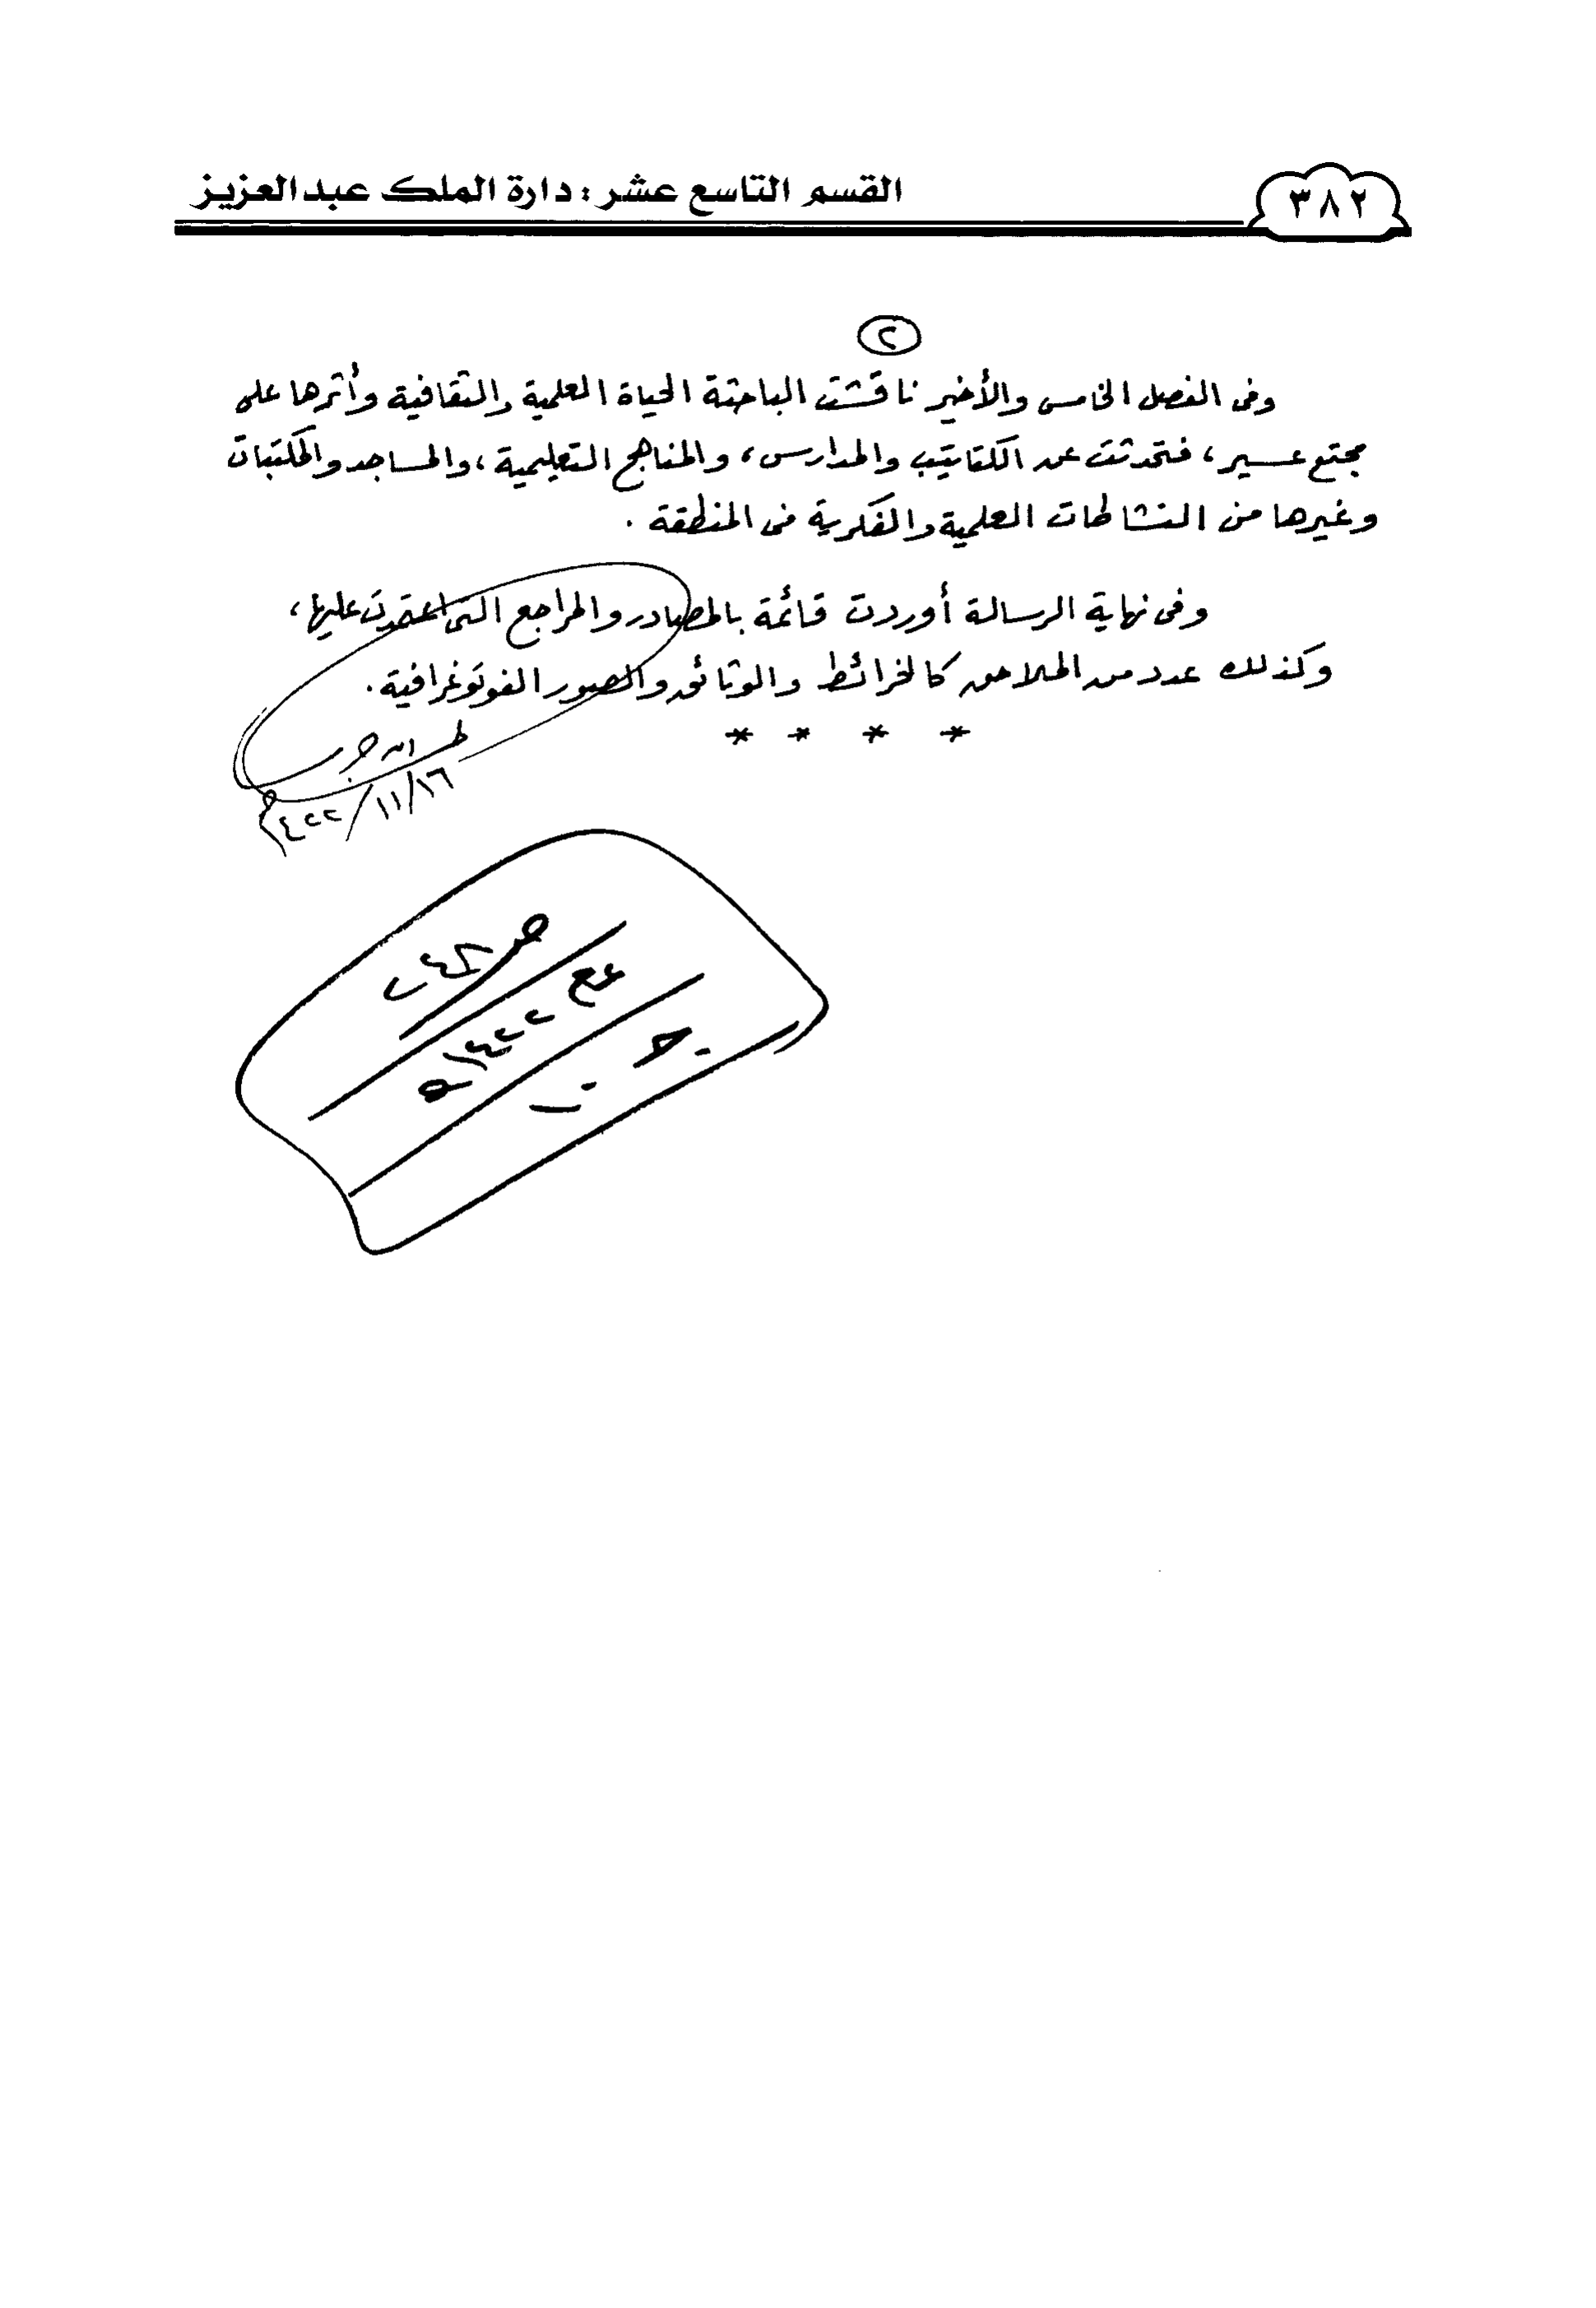 ٣٨٢
القسم التاسع عشر : دارة الملك عبد العزيز
٢
وفى الفصل الخامس والأخير ناقشت الباحثة الحياة العلمية والثقافية وأثرها على
مجتمع عسير، فتحدثت عن الكتاتيب والمدارس، والمناهج التعليمية، والمساجد والمكتبات
وغيرها من النشاطات العلمية والفكرية فى المنطقة .
وفى نهاية الرسالة أوردت قائمة بالمصادر والمراجع التى اعتمدت عليها،
وكذلك عدد من الملاحق كالخرائط والوثائق والصور الفوتوغرافية.
* * * *
١٦/١١/١٤٢٢هـ
١٤٢٢هـ